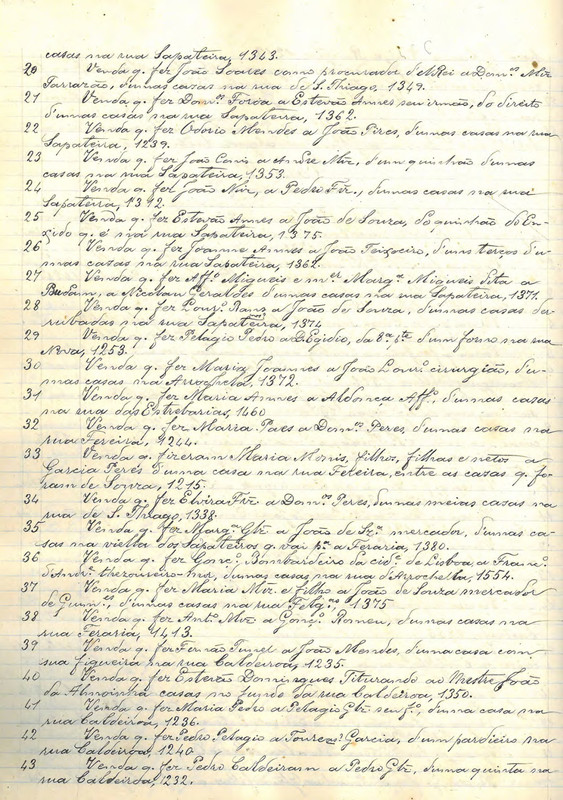 casas na rua Sapateira, 1343.
20 Venda q. fez João Soares como procurador d'ElRei a Dom.os Miz
Tarrazão, d'umas cazas na rua de S. Thiago, 1349.
21 Venda q. fez Dom.os a Estevão Annes seu irmão, do direito
d'umas casas na rua Sapateira, 1362.
22 Venda q. fez Odorio Mendes a João Pires, d'umas casas na rua
Sapateira, 1239.
23 Venda q. fez João a Andre Miz, d'um quinhão d'umas
casas na rua Sapateira, 1353.
24 Venda q. fez João a Pedro Frz., d'umas casas na rua
Sapateira, 1392.
25 Venda q. fez Estevão Annes a João de Souza, do quinhão do En-
xido q. é na rua Sapateira, 1375.
26 Venda q. fez Joanne Annes a João Teixeiro, d'uns terços d'u-
mas cazas na rua Sapateira, 1362.
27 Venda q. fez Aff.º Migueis e m.er Marg.da Migueis dita a
a Nicolau Geraldes d'umas casas na rua Sapateira, 1371.
28 Venda q. fez Lour.ço a João de Souza, d'umas casas der-
rubadas na rua Sapateira, 1374
29 Venda q. fez Pelagio Pedro a D. Egidio, da 8.ª p.te d'um forno na rua
Nova, 1253.
30 Venda q. fez Maria Joannes a João Lour.ço cirurgião, d'u-
mas casas na Arrochela, 1372.
31 Venda q. fez Maria Annes a Aldonça Aff.º, d'umas casas
na rua das Estrebarias, 1460
32 Venda q. fez Maria Paes a Dom.os Peres, d'umas casas na
rua Fereira, 1244.
33 Venda q. fizeram Maria Monis, filhos, filhas e netos a
Garcia Peres d'uma casa na rua Fereira, entre as casas q. fo-
ram de Souza, 1215.
34 Venda q. fez Elvira Frz a Dom.os Peres, d'umas meias casas na
rua de S. Thiago, 1338.
35 Venda q. fez Marg.da Glz a João de Sz.ª mercador, d'umas ca-
sas na viella dos Sapateiros q. vai p.ª a Feraria, 1380.
36 Venda q. fez Gonç.º, Bombardeiro da cid.e de Lisboa, a Fran.co
d'Andr.e thezoureiro-mor, d'umas casas na rua d'Arrochella, 1554.
37 Venda q. fez Maria Miz e filho a João de Souza mercador
de Guim.es, d'umas casas na rua 1375
38 Venda q. fez Ant.º Miz a Gonç.º Romeu, d'umas casas na
rua Feraria, 1413.
39 Venda q. fez Fernão a João Mendes, d'uma casa com
sua figueira na rua Caldeiroa, 1235.
40 Venda q. fez Estevão Domingues Titurando ao Mestre João
da Almoinha casas no fundo da rua Caldeiroa, 1350.
41 Venda q. fez Maria Pedro a Pelagio Glz seu f.º, d'uma casa na
rua Caldeiroa, 1236.
42 Venda q. fez Pedro Pelagio a Garcia, d'um pardieiro na
rua Caldeiroa, 1240
43 Venda q. fez Pedro Caldeiram a Pedro Glz, d'uma quinta na
rua Caldeiroa, 1232.